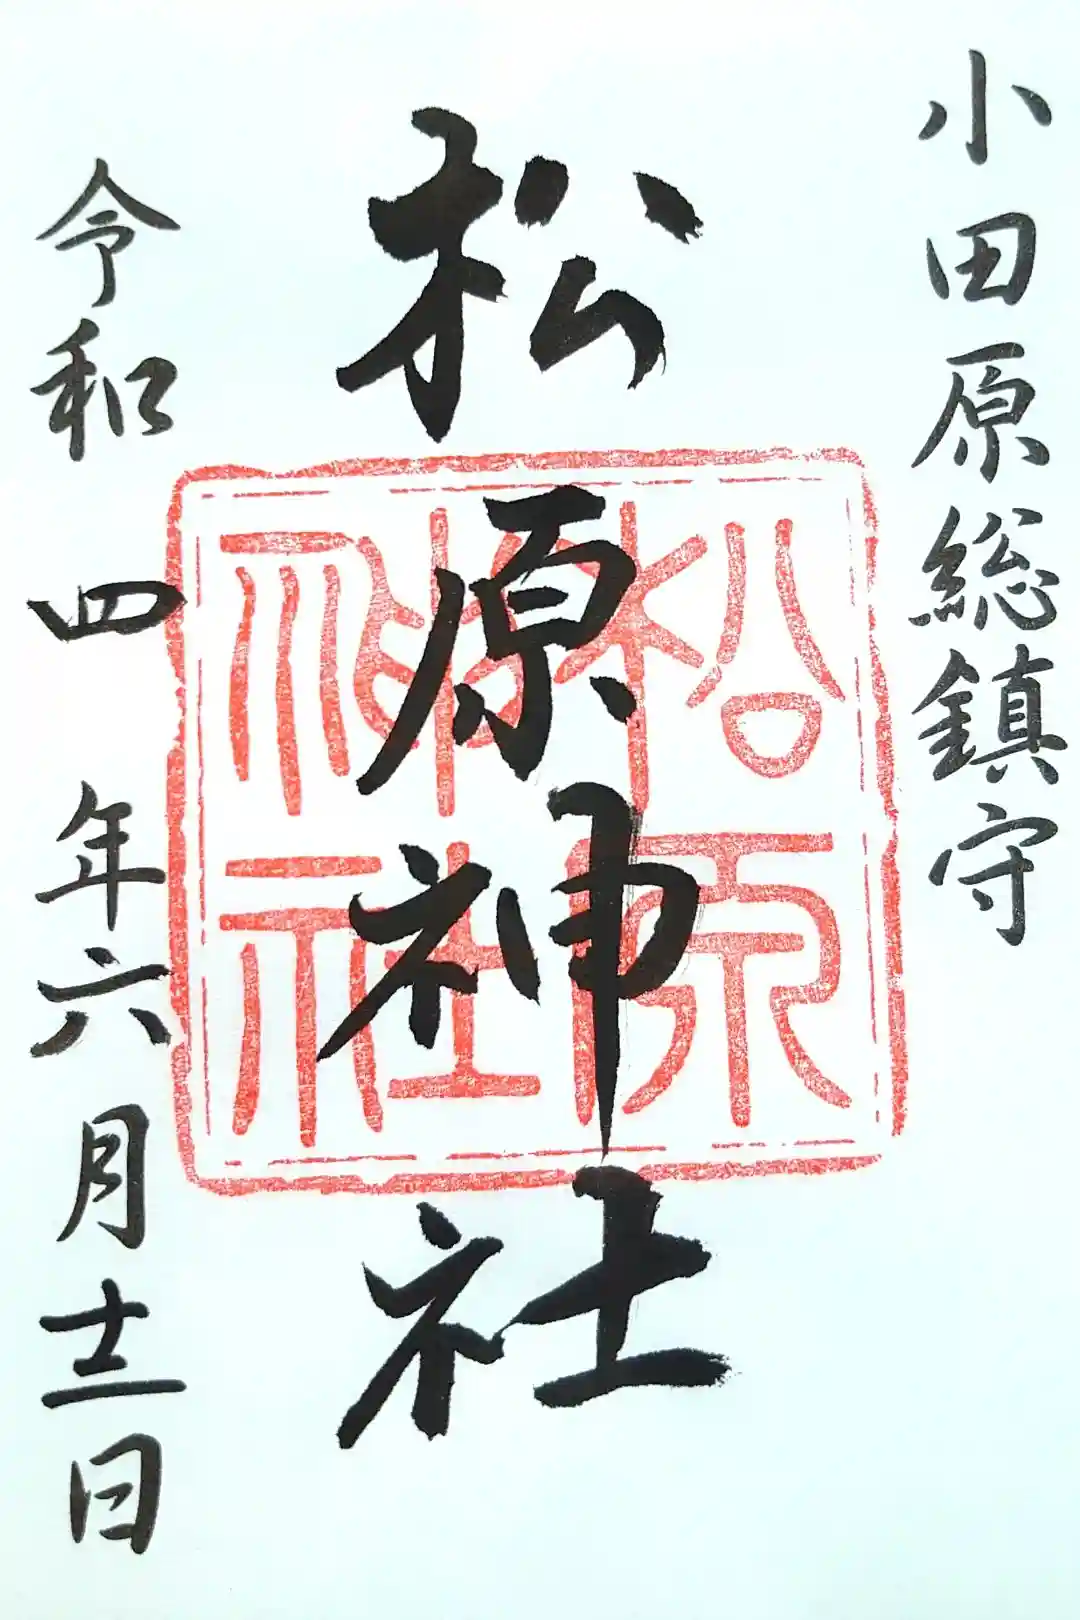 小田原総鎮守
松原神社
松原
神社
令和四年六月十二日